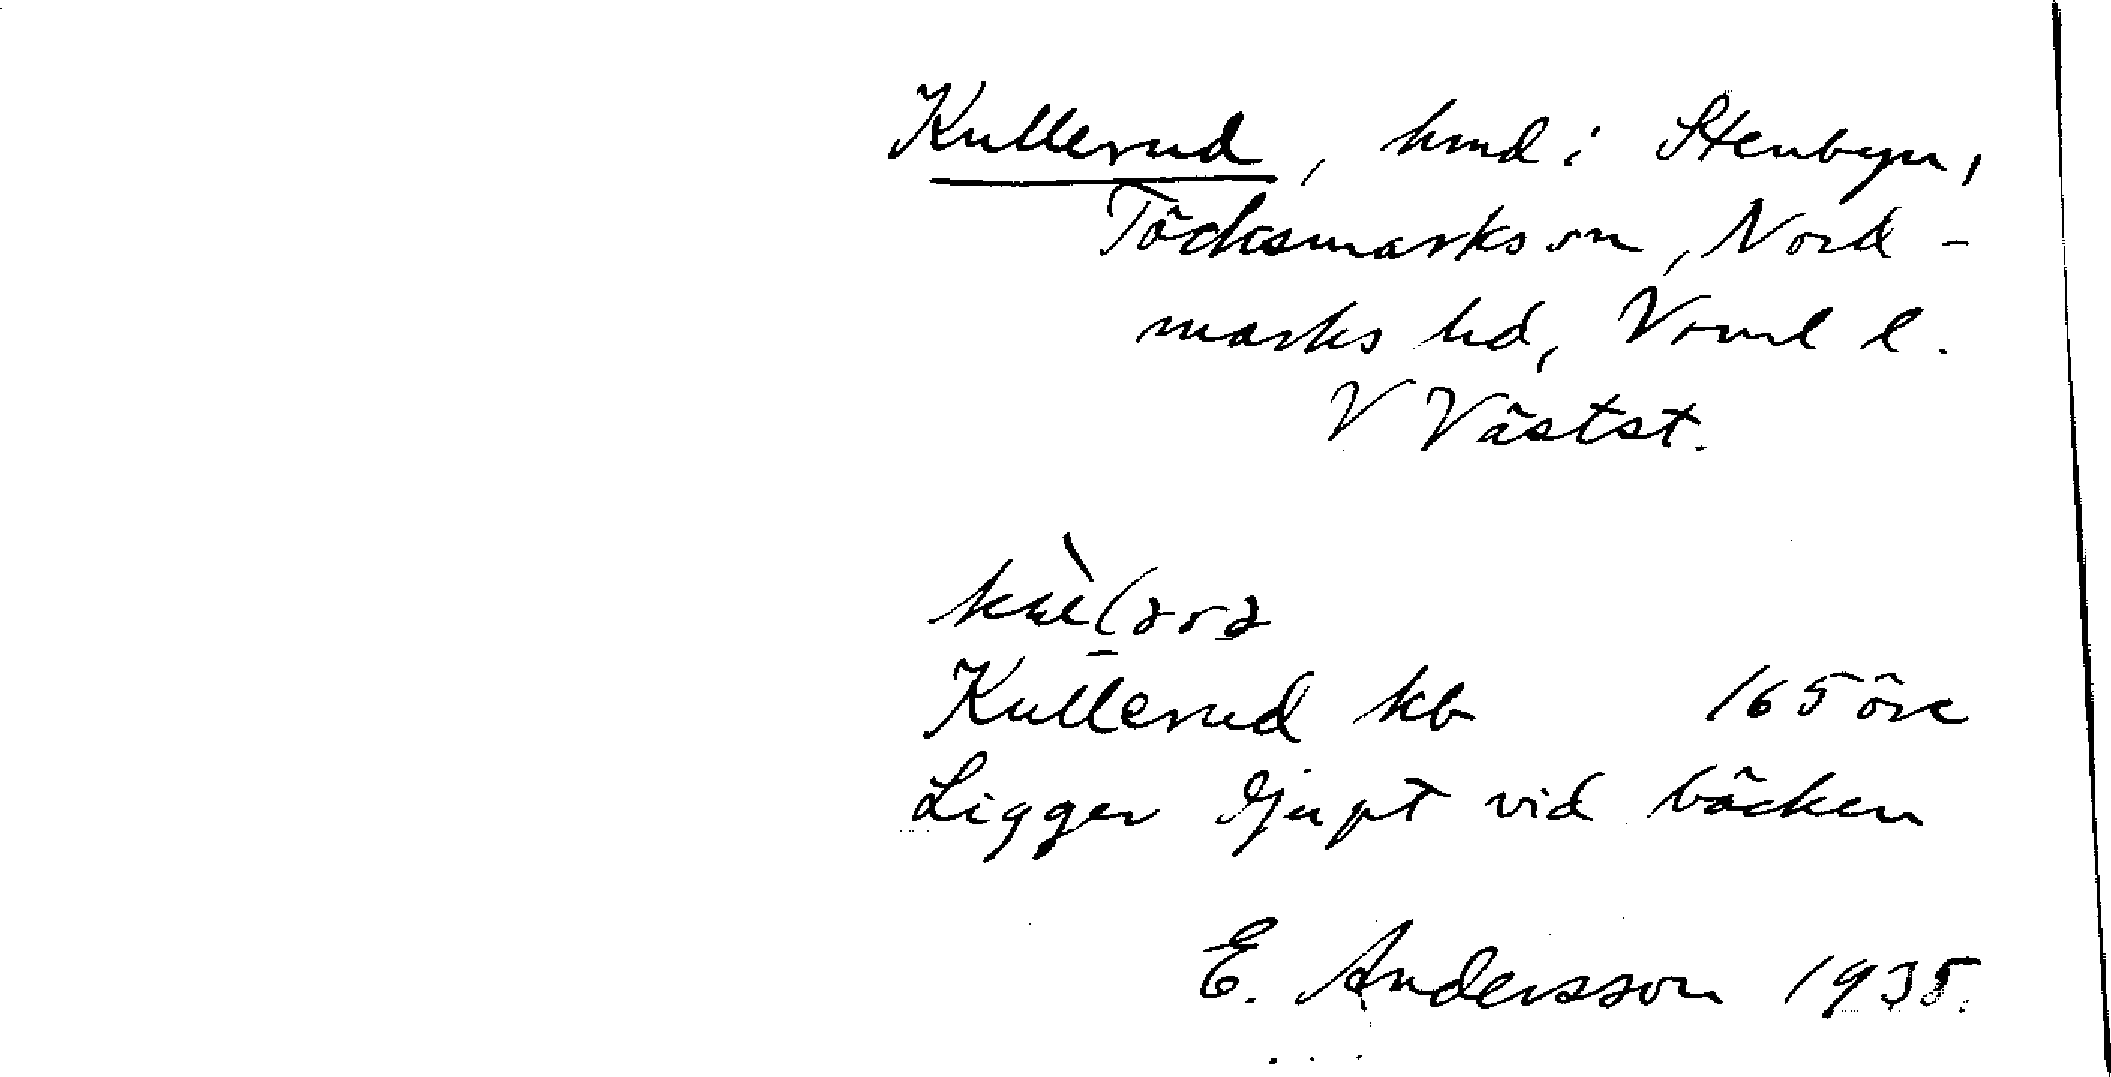 Kullerud, hmd i Stenbyn,
Töcksmarks sn, Nord-
marks hd, Vrml l.
V Västst.
Kullerud kb 165 öre
Ligger djupt vid bäcken
E. Andersson 1935.